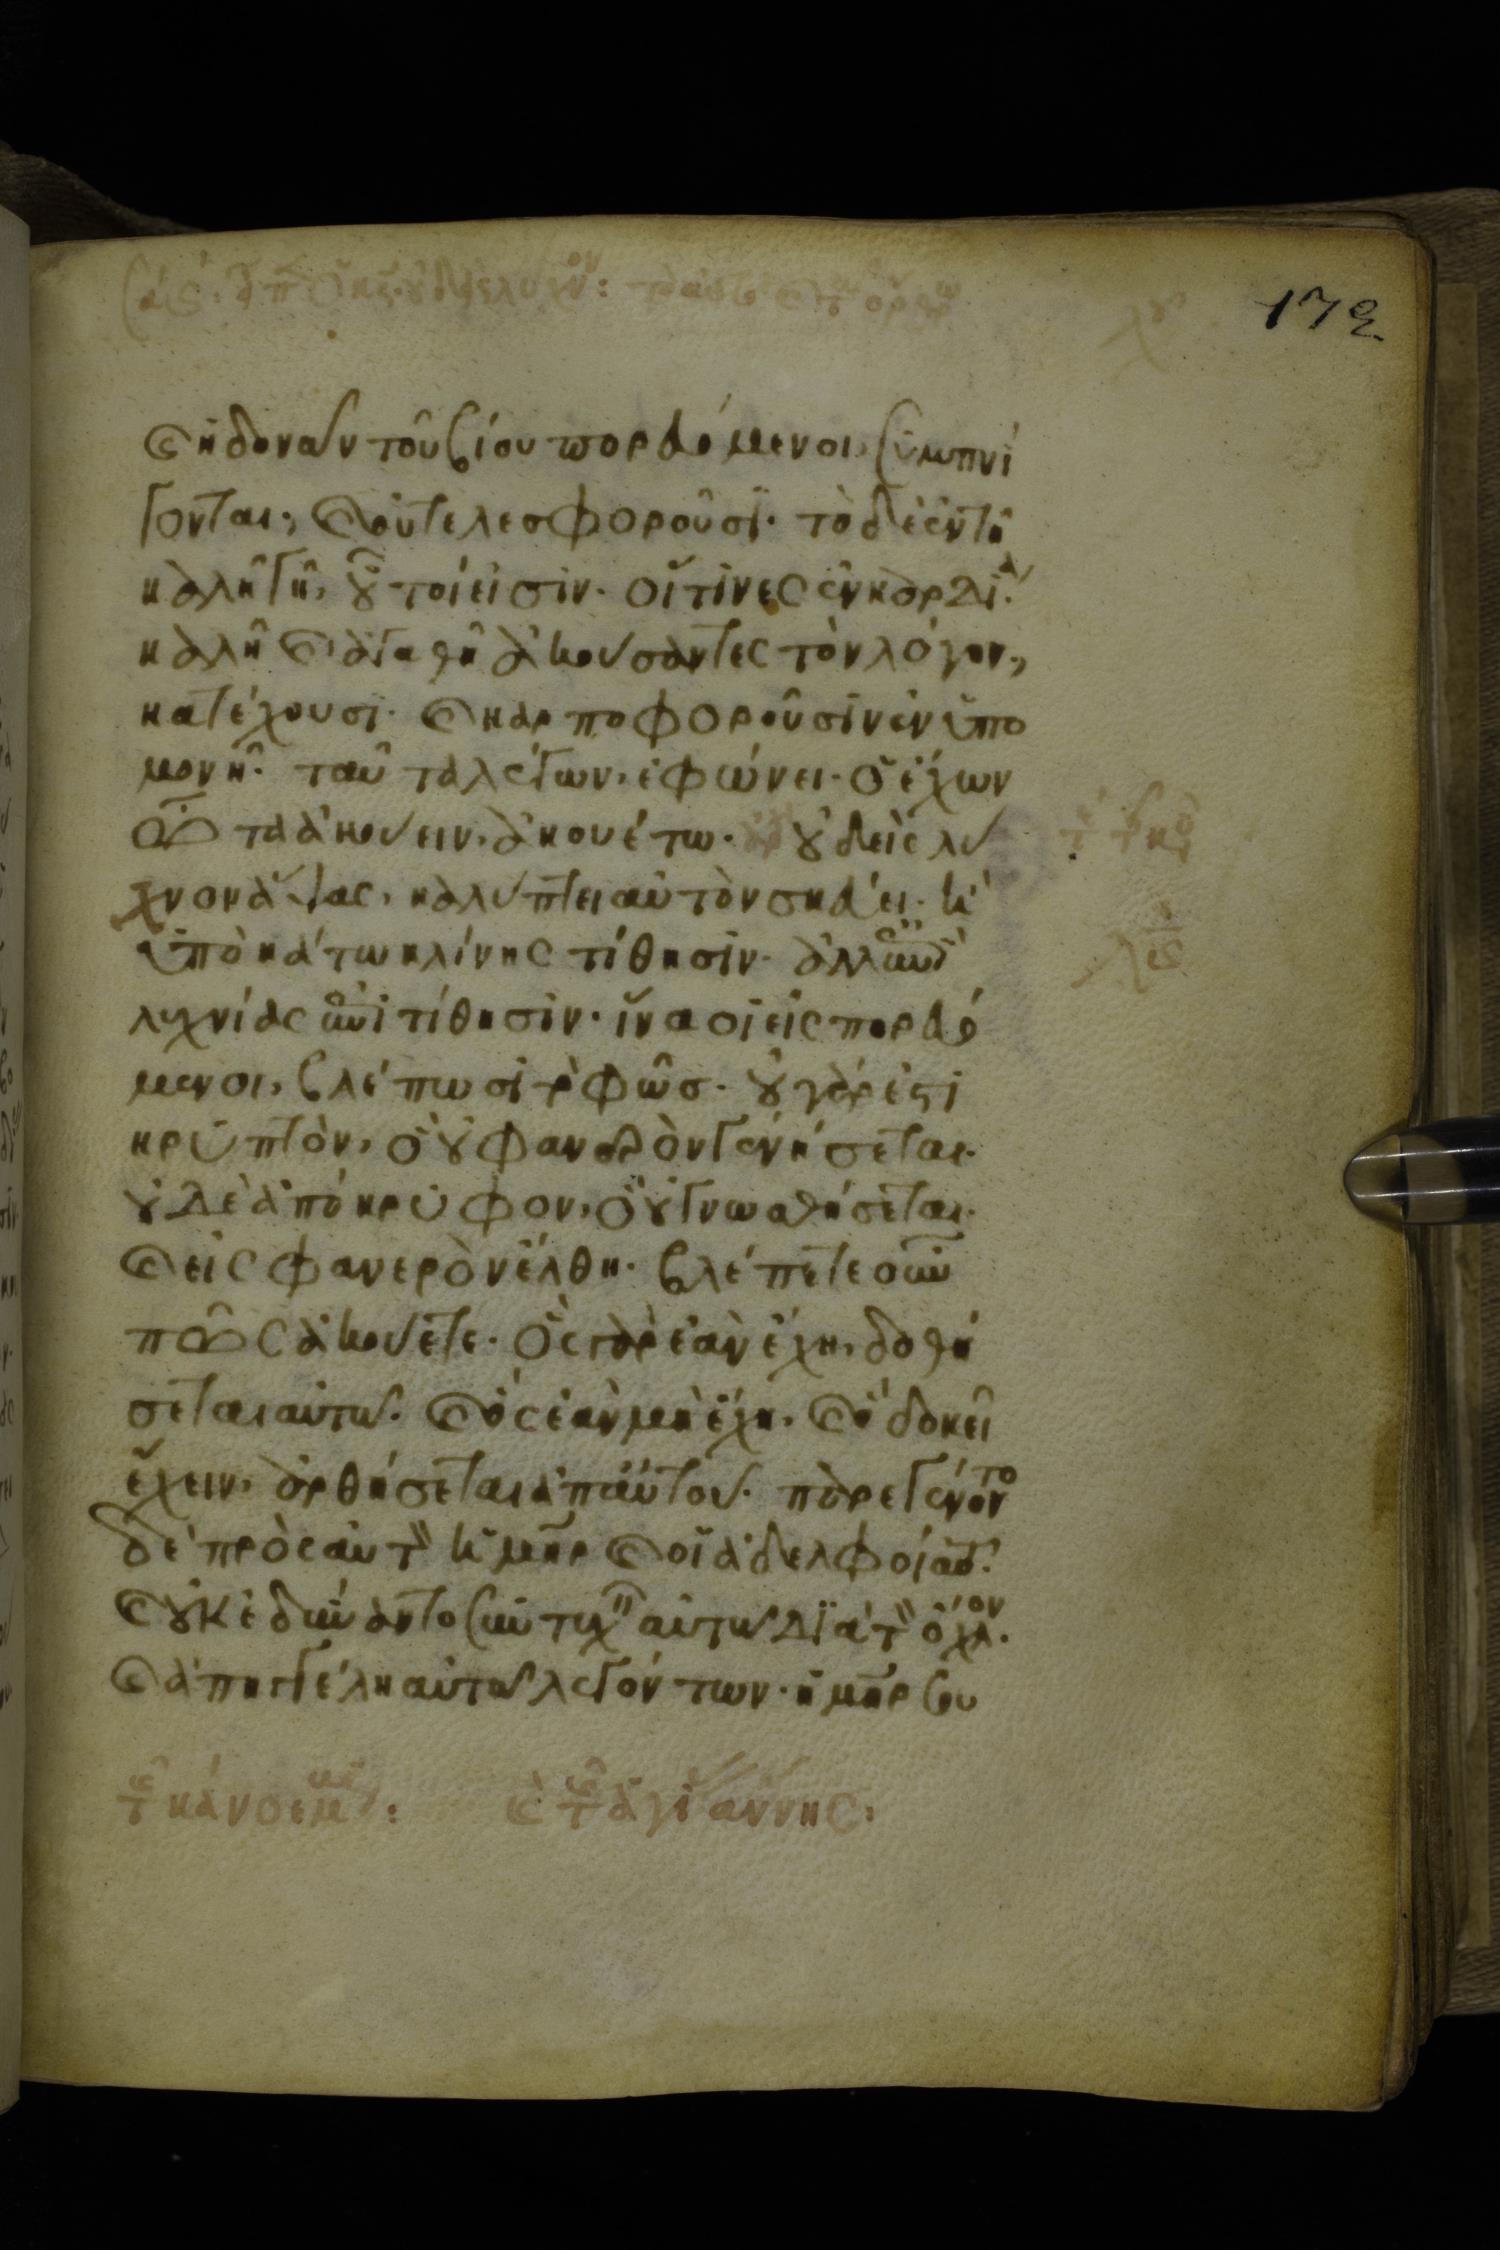 172
καὶ ἡδονῶν τοῦ βίου πορευόμενοι, συμπνί
γονται, καὶ οὐ τελεσφοροῦσι. τὸ δὲ ἐν τῆ
καλῆ γῆ, οὗτοί εἰσιν. οἵτινες ἐν καρδία
καλῆ καὶ ἀγαθῆ ἀκούσαντες τὸν λόγον,
κατέχουσι. καὶ καρποφοροῦσιν ἐν ὑπο
μονῆ. ταῦτα λέγων, ἐφώνει. ὁ ἔχων
ὦτα ἀκούειν, ἀκουέτω. οὐδεὶς λύ
χνον ἅψας, καλύπτει αὐτὸν σκεύει. ἢ
ὑποκάτω κλίνης τίθησιν. ἀλλ' ἐπὶ
λυχνίας ἐπιτίθησιν. ἵνα οἱ εἰσπορευό
μενοι, βλέπωσι τὸ φῶς. οὐ γάρ ἐστι
κρυπτὸν, ὃ οὐ φανερὸν γενήσεται.
οὐδὲ ἀπόκρυφον, ὃ οὐ γνωσθήσεται.
καὶ εἰς φανερὸν ἔλθη. βλέπετε οὖν
πῶς ἀκούετε. ὃς γὰρ ἐὰν ἔχη, δοθή
σεται αὐτῶ. καὶ ὃς ἐὰν μὴ ἔχη, καὶ ὃ δοκεῖ
ἔχειν, ἀρθήσεται ἀπ' αὐτοῦ. παρεγένοντο
δὲ πρὸς αὐτὸν ἡ μηρ καὶ οἱ ἀδελφοὶ αὐτοῦ.
καὶ οὐκ ἐδύναντο συντυχεῖν αὐτῶ διὰ τὸν ὄχλον.
καὶ ἀπηγγέλη αὐτῶ λεγόντων. ἡ μηρ σου